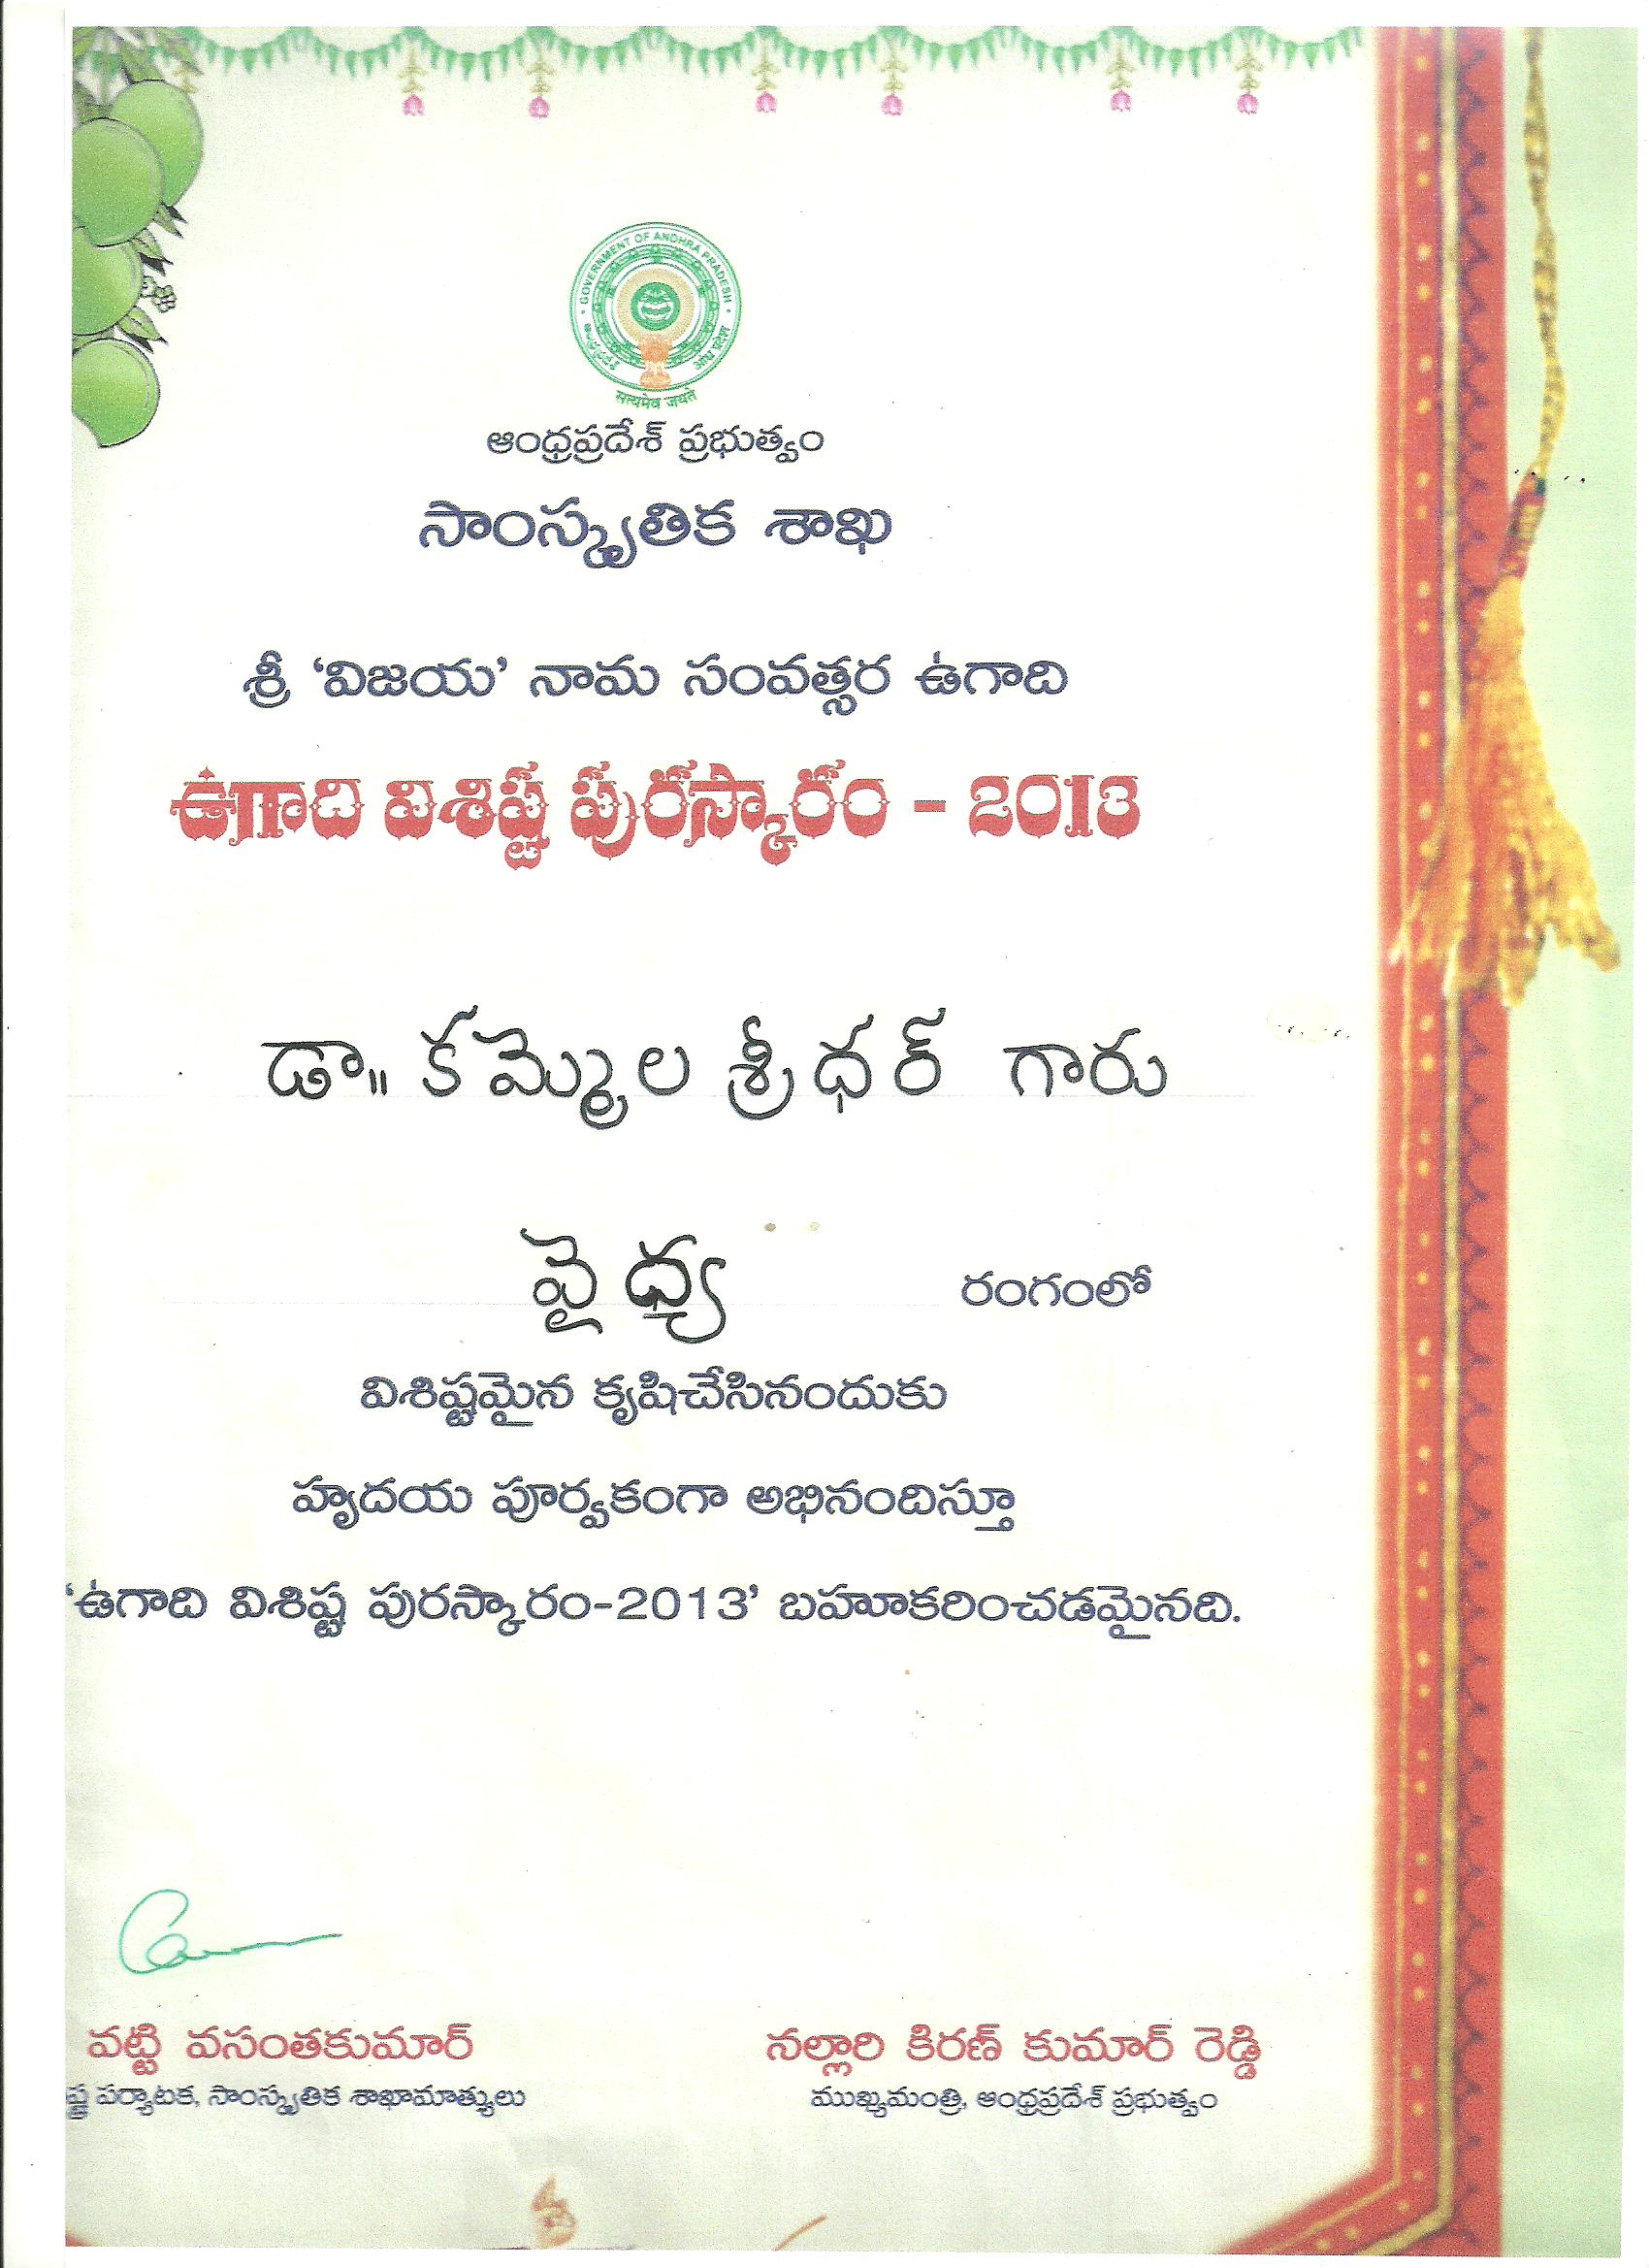 GOVERNMENT OF ANDHRA PRADESH
सत्यमेव जयते
ఆంధ్రప్రదేశ్ ప్రభుత్వం
సాంస్కృతిక శాఖ
శ్రీ ‘విజయ’ నామ సంవత్సర ఉగాది
ఉగాది విశిష్ట పురస్కారం - 2013
డా॥ కమ్మెల శ్రీధర్ గారు
వైధ్య రంగంలో
విశిష్టమైన కృషిచేసినందుకు
హృదయ పూర్వకంగా అభినందిస్తూ
‘ఉగాది విశిష్ట పురస్కారం-2013’ బహూకరించడమైనది.
వట్టి వసంతకుమార్ నల్లారి కిరణ్ కుమార్ రెడ్డి
పర్యాటక, సాంస్కృతిక శాఖామాత్యులు ముఖ్యమంత్రి, ఆంధ్రప్రదేశ్ ప్రభుత్వం